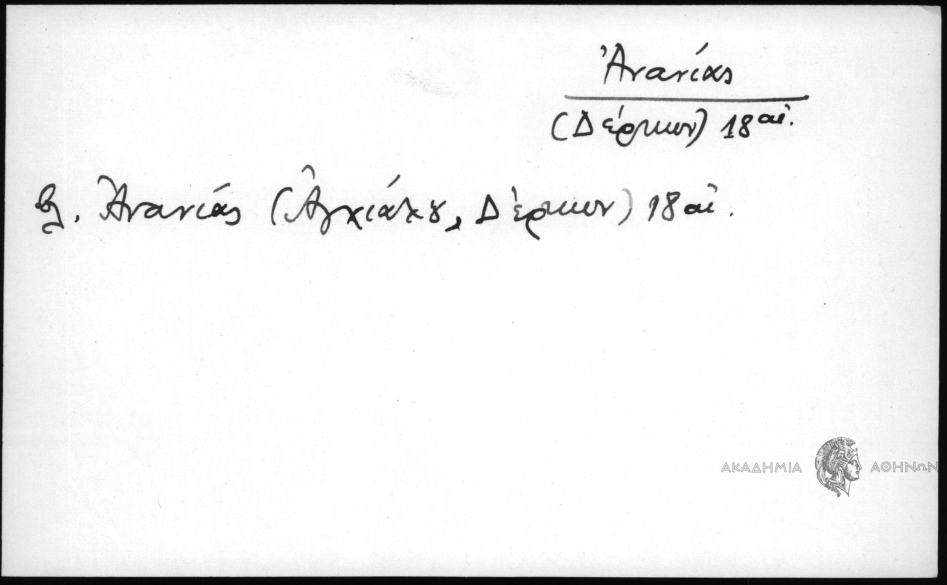 Ἀνανίας
(Δέρκων) 18 αἰ.
βλ. Ἀνανίας (Ἀγχιάλου, Δέρκων) 18 αἰ.
ΑΚΑΔΗΜΙΑ ΑΘΗΝΩΝ